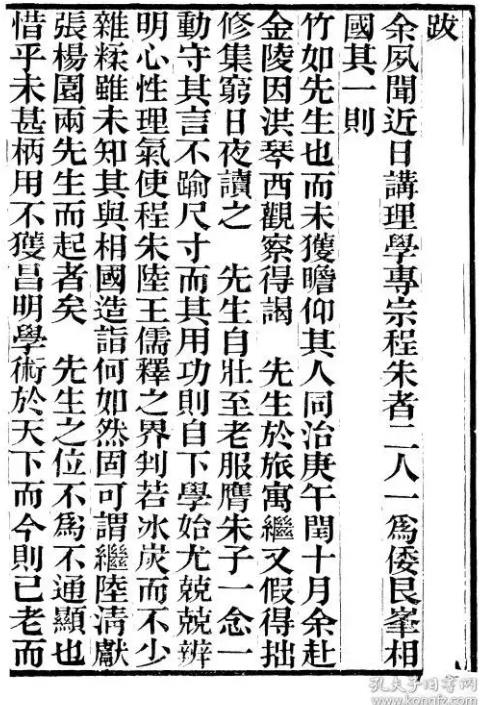 跋
余夙聞近日講理學專宗程朱者二人一爲倭艮峯相
國其一則
竹如先生也而未獲瞻仰其人同治庚午閏十月余赴
金陵因洪琴西觀察得謁　先生於旅寓繼又假得拙
修集窮日夜讀之　先生自壯至老服膺朱子一念一
動守其言不踰尺寸而其用功則自下學始尤兢兢辨
明心性理氣使程朱陸王儒釋之界判若冰炭而不少
雜糅雖未知其與相國造詣何如然固可謂繼陸清獻
張楊園兩先生而起者矣　先生之位不爲不通顯也
惜乎未甚柄用不獲昌明學術於天下而今則已老而
孔夫子旧书网
www.kongfz.com